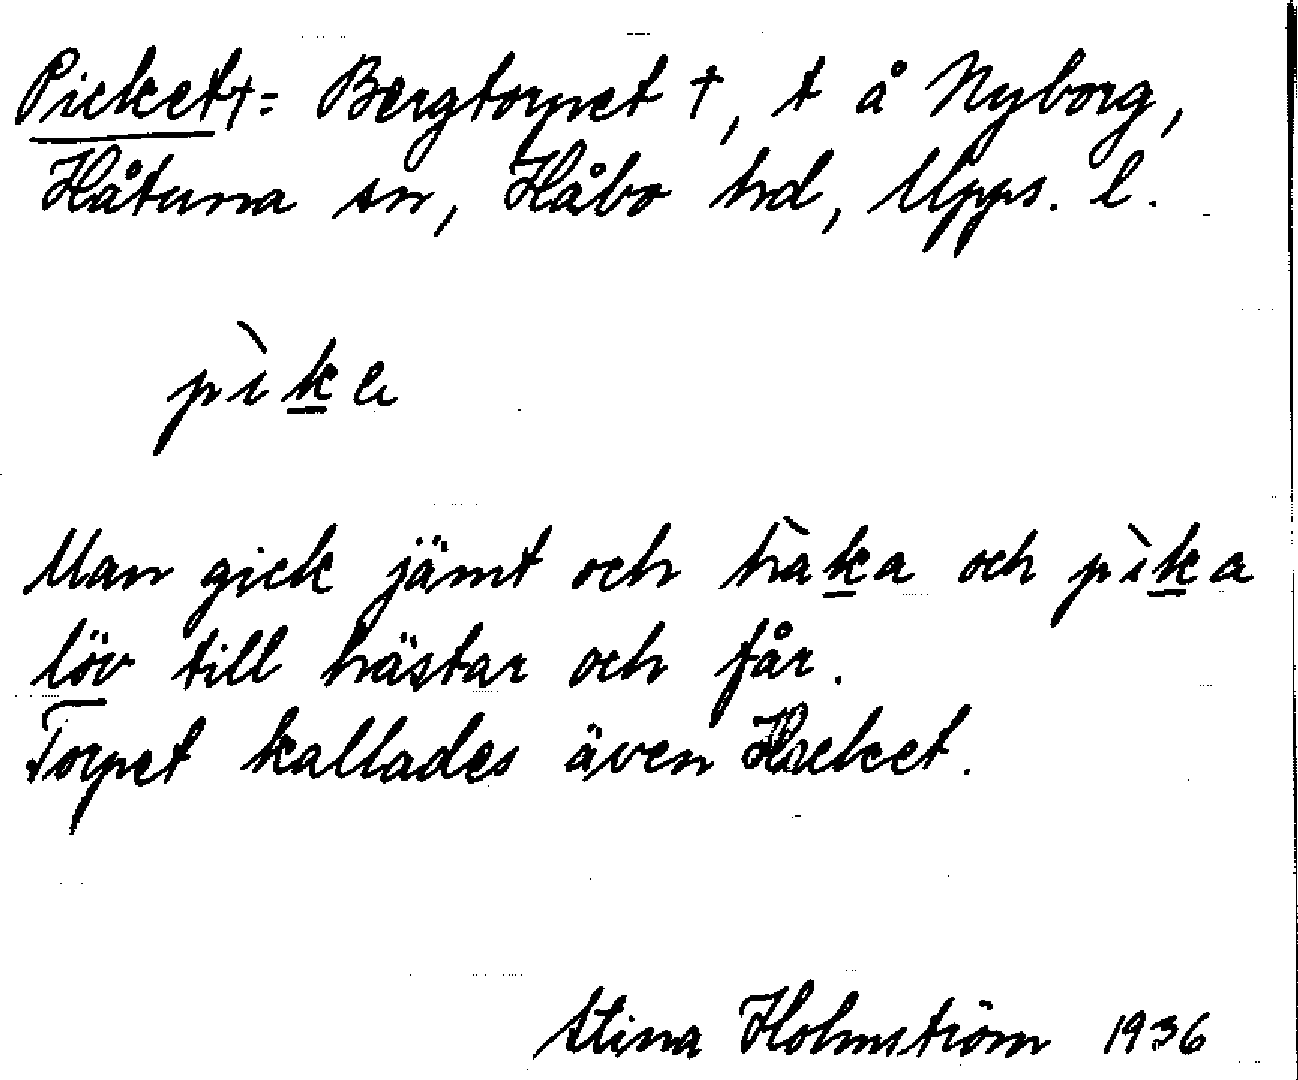 Picket†= Bergtorpet †, t å Nyborg,
Håtuna sn, Håbo hd, Upps. l.
pìke
Man gick jämt och hàka och pìka
löv till hästar och får.
Torpet kallades även Hacket.
Stina Holmström 1936